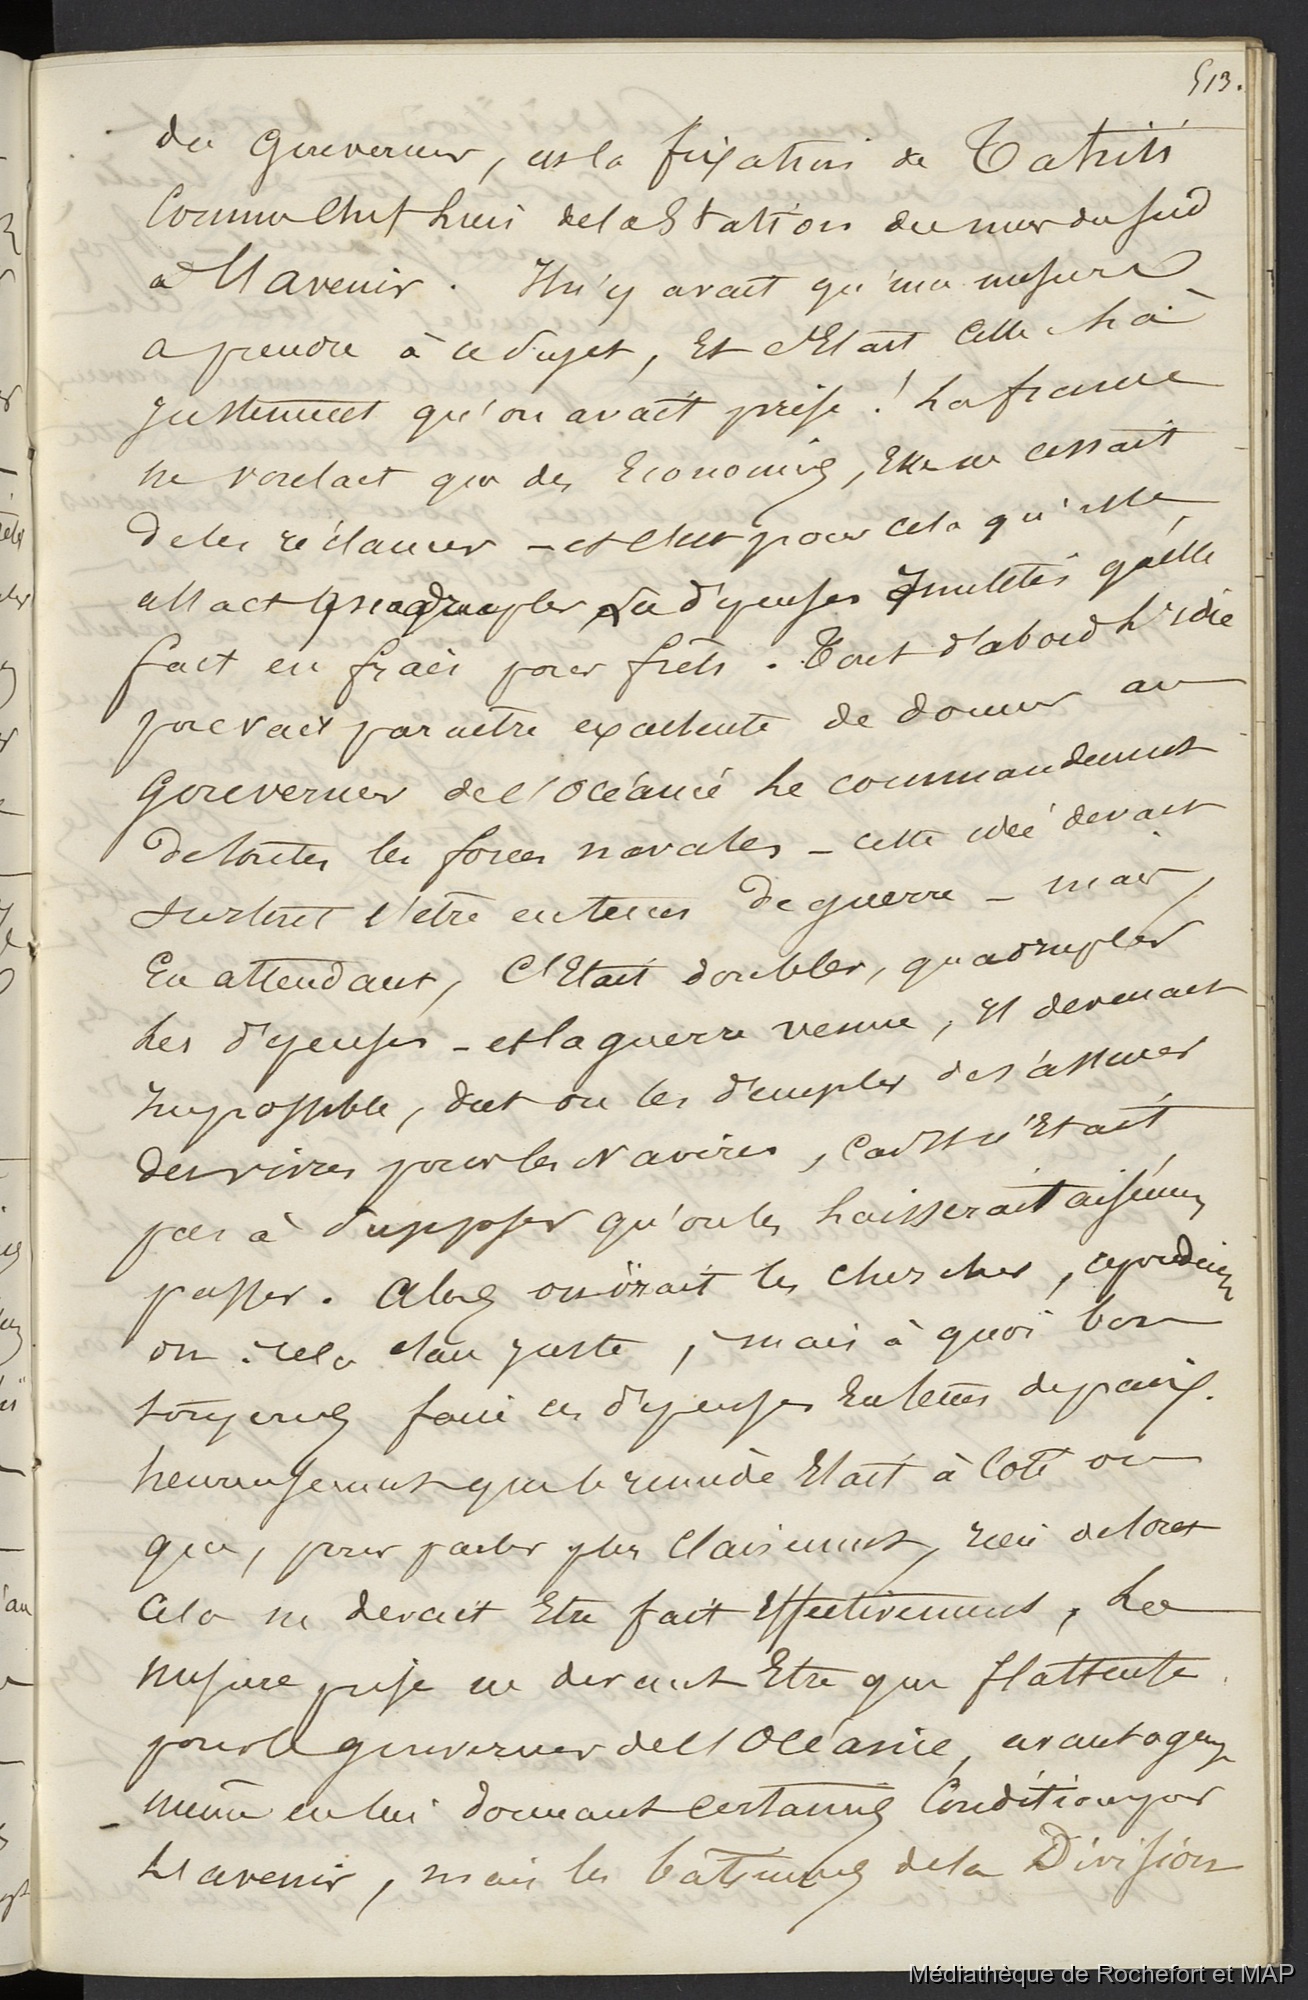 513.
du Gouverneur, est la fixation de Tahiti
Comme Chef lieu de la Station du mer du sud
a l'avenir. Il n'y avait qu'une mesure
a prendre à ce sujet, Et c'Etait Celle là
justement qu'on avait prise! La france
ne voulait que des Economies, Elle ne cessait
de les réclamer – et c'est pour cela qu'elle
allait quadrupler les dépenses Inutiles qu'elle
fait en frais pour frêts. Tout d'abord l'idée
pouvait paraitre excellente de donner au
Gouverneur de l'Océanie le commandement
de toutes les forces navales – cette idée devait
surtout l'etre en tems de guerre – mais,
En attendant, C'Etait doubler, quadrupler
les dépenses – et la guerre venue, Il devenait
Impossible, dut on les decupler de s'assurer
des vivres pour les Navires, Car Il n'Etait
pas à supposer qu'on les laisserait aisément
passer. Alors on irait les chercher, repondait
on. Cela Etait juste, mais à quoi bon
toujours faire ces dépenses En tems de paix.
heureusement que le remède Etait à Coté ou
que, pour parler plus Clairement, rien de tout
Cela ne devait Etre fait Effectivement, La
mesure prise ne devant Etre que flatteuse
pour le gouverneur de l'Océanie, avantageuse
même en lui donnant certaines Conditions pour
l'avenir, mais les bâtimens de la Division
Médiathèque de Rochefort et MAP